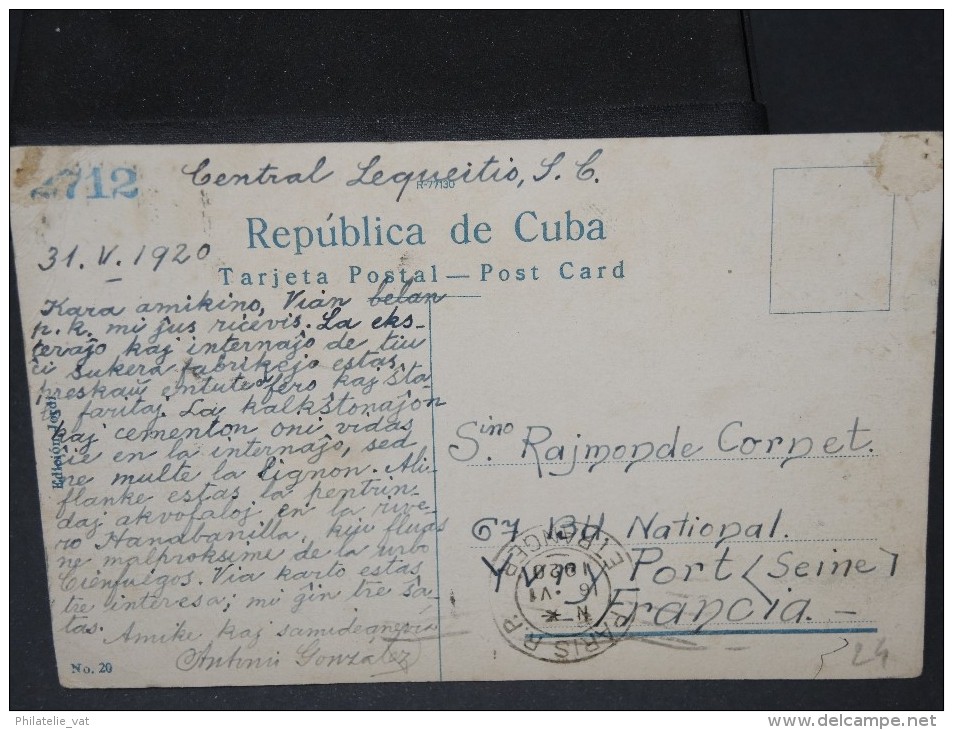 2712
Central Lequeitio, S. C.
R-77130
República de Cuba
Tarjeta Postal — Post Card
31. V. 1920
Kara amikino, Vian belan
p. k. mi ĵus ricevis. La eks-
teraĵo kaj internaĵo de tiu
ĉi sukera fabrikejo estas
preskaŭ entute el fero kaj ŝta-
lo faritaj. La kalkŝtonaĵon
kaj cementon oni vidas
ĉie en la internaĵo, sed
ne multe la lignon. Ali-
flanke estas la pentrin-
daj akvofaloj en la rive-
ro Hanabanilla, kiu fluas
ne malproksime de la urbo
Cienfuegos. Via karto estas
tre interesa; mi ĝin tre ŝa-
tas.
Amike kaj samideane via
Antonii Gonzalez
Edición Jordi
No. 20
Sino Rajmonde Cornet.
67 Bd. National
Port (Seine)
Francia.—
PARIS R.P.
ETRANGER
16 VI
1920
24
Philatelie_vat
www.delcampe.net